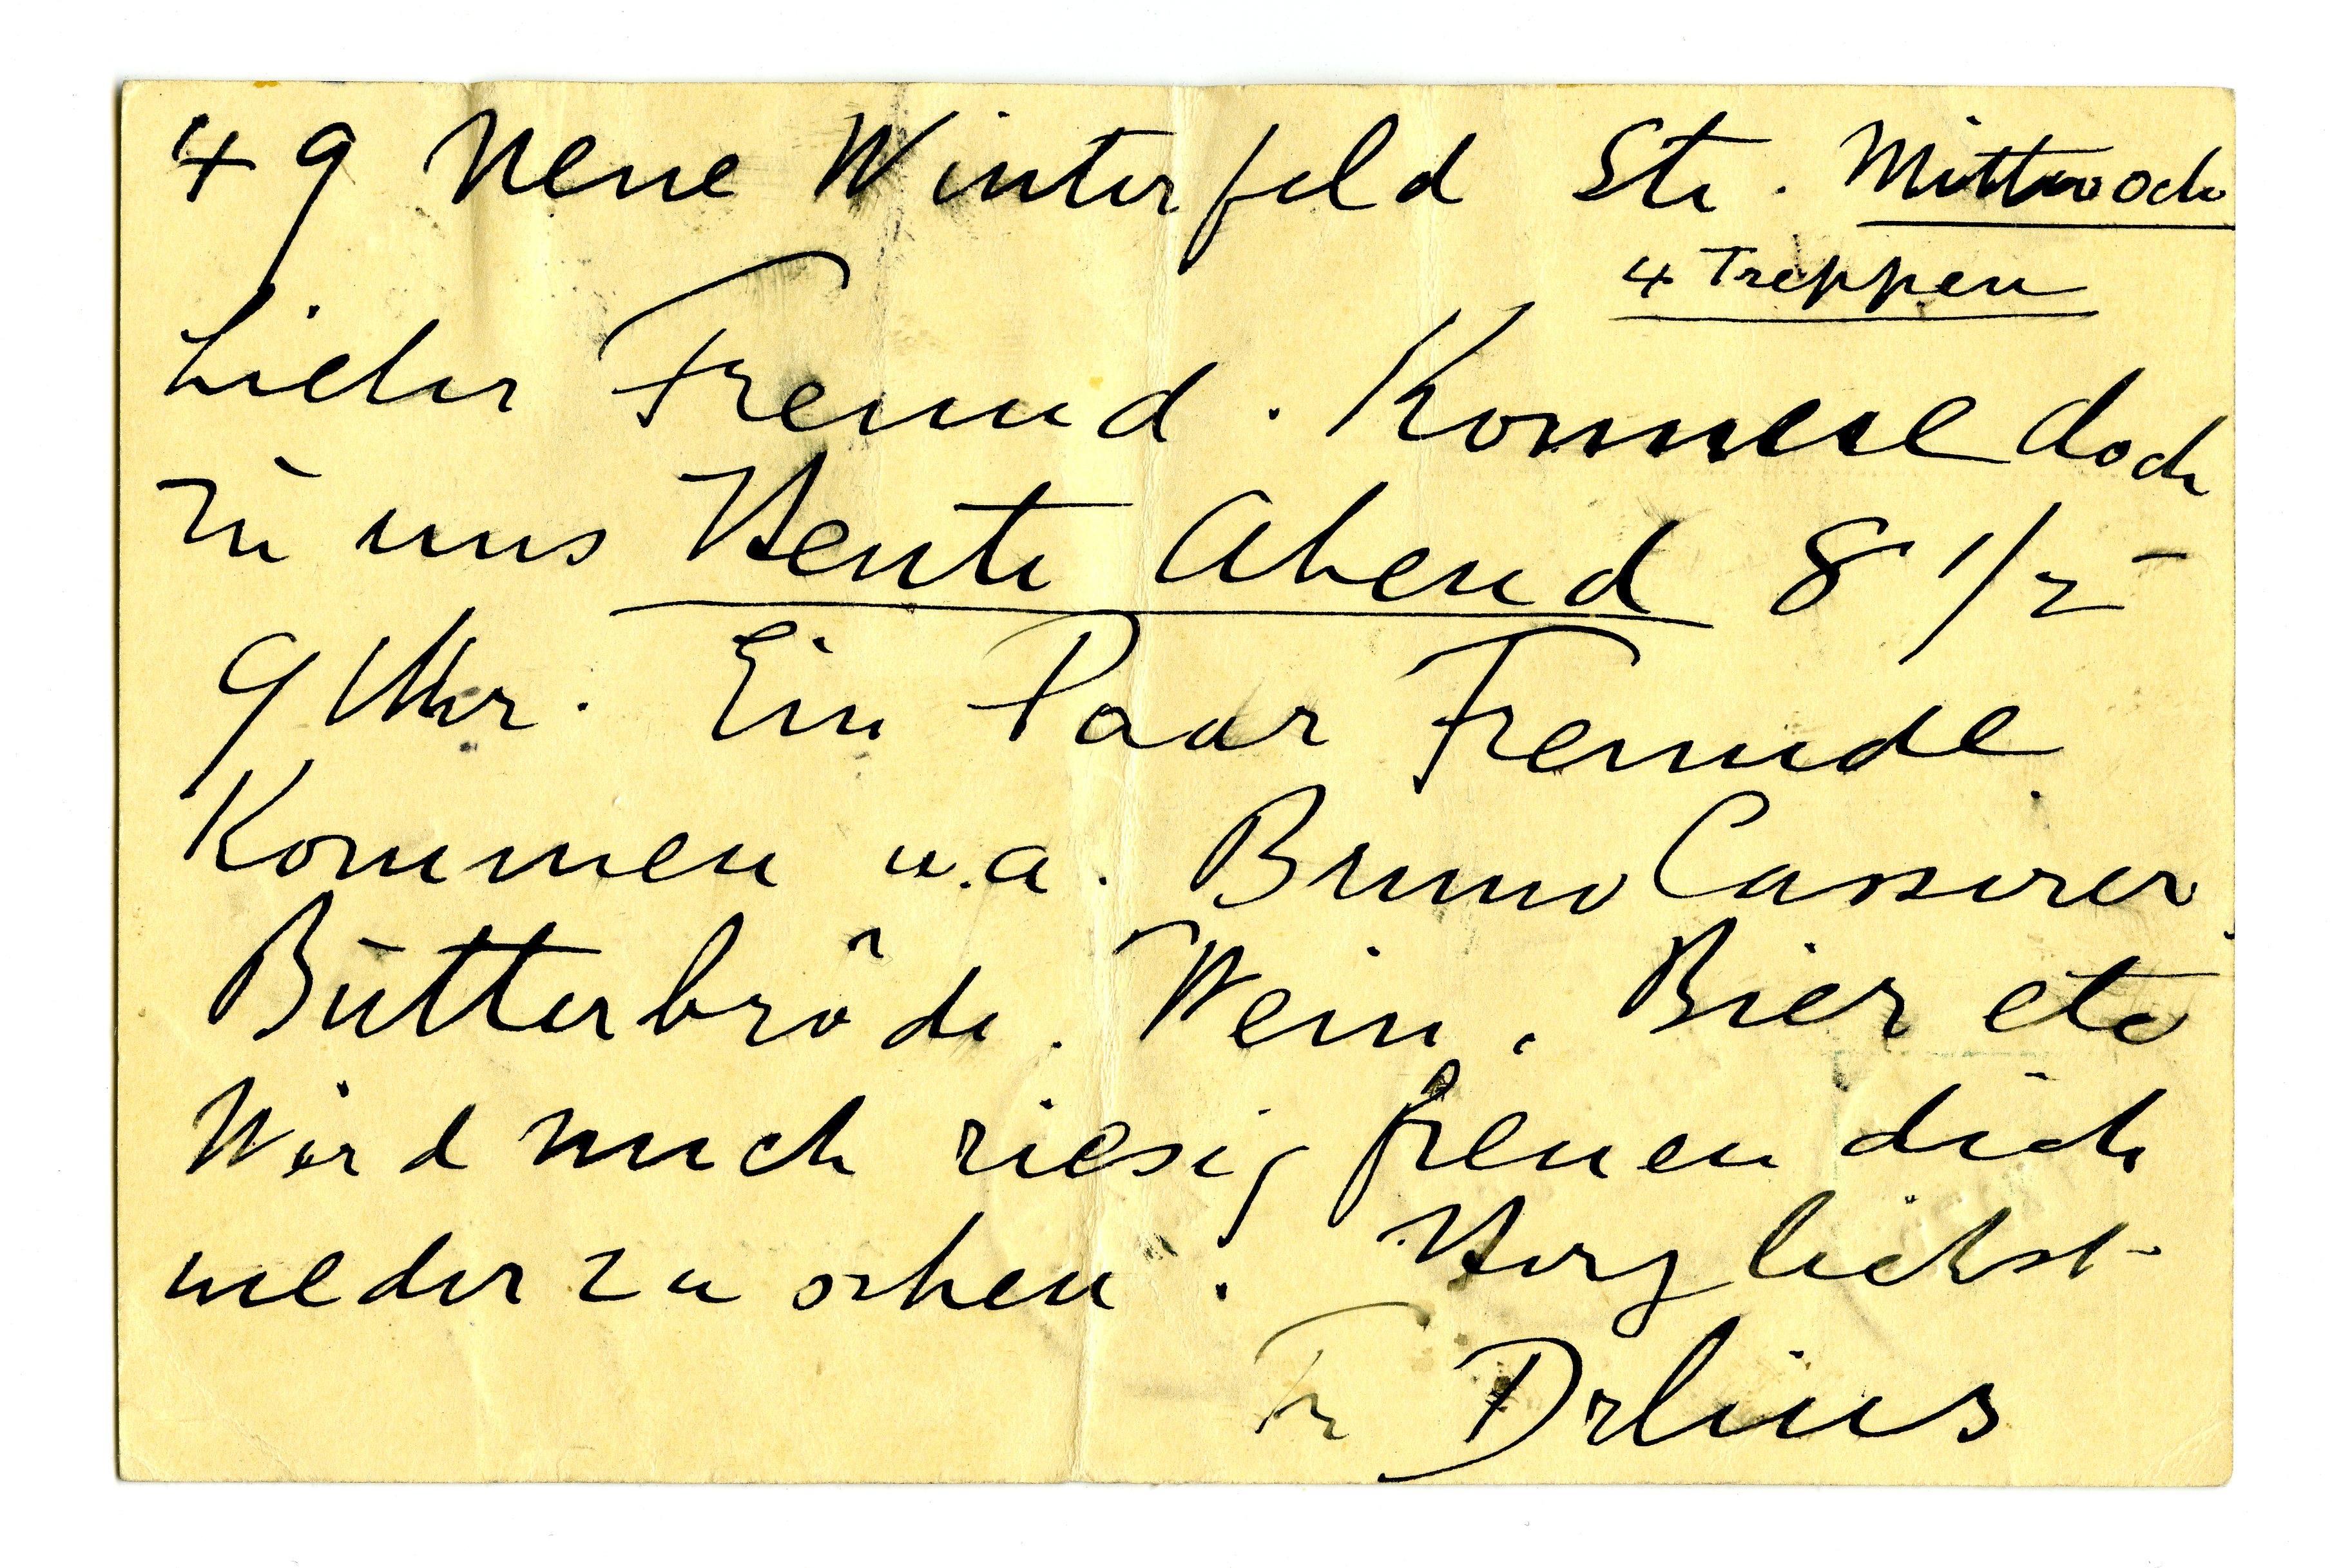 49 Neue Winterfeld Str. Mittwoch
4 Treppen
Lieber Freund. Komme doch
zu uns Heute Abend 8 1/2 -
9 Uhr. Ein Paar Freunde
Kommen u.a. Bruno Cassirer.
Butterbröde. Wein. Bier etc
Wird mich riesig freuen dich
wieder zu sehen. Herzlichst
Fr Delius